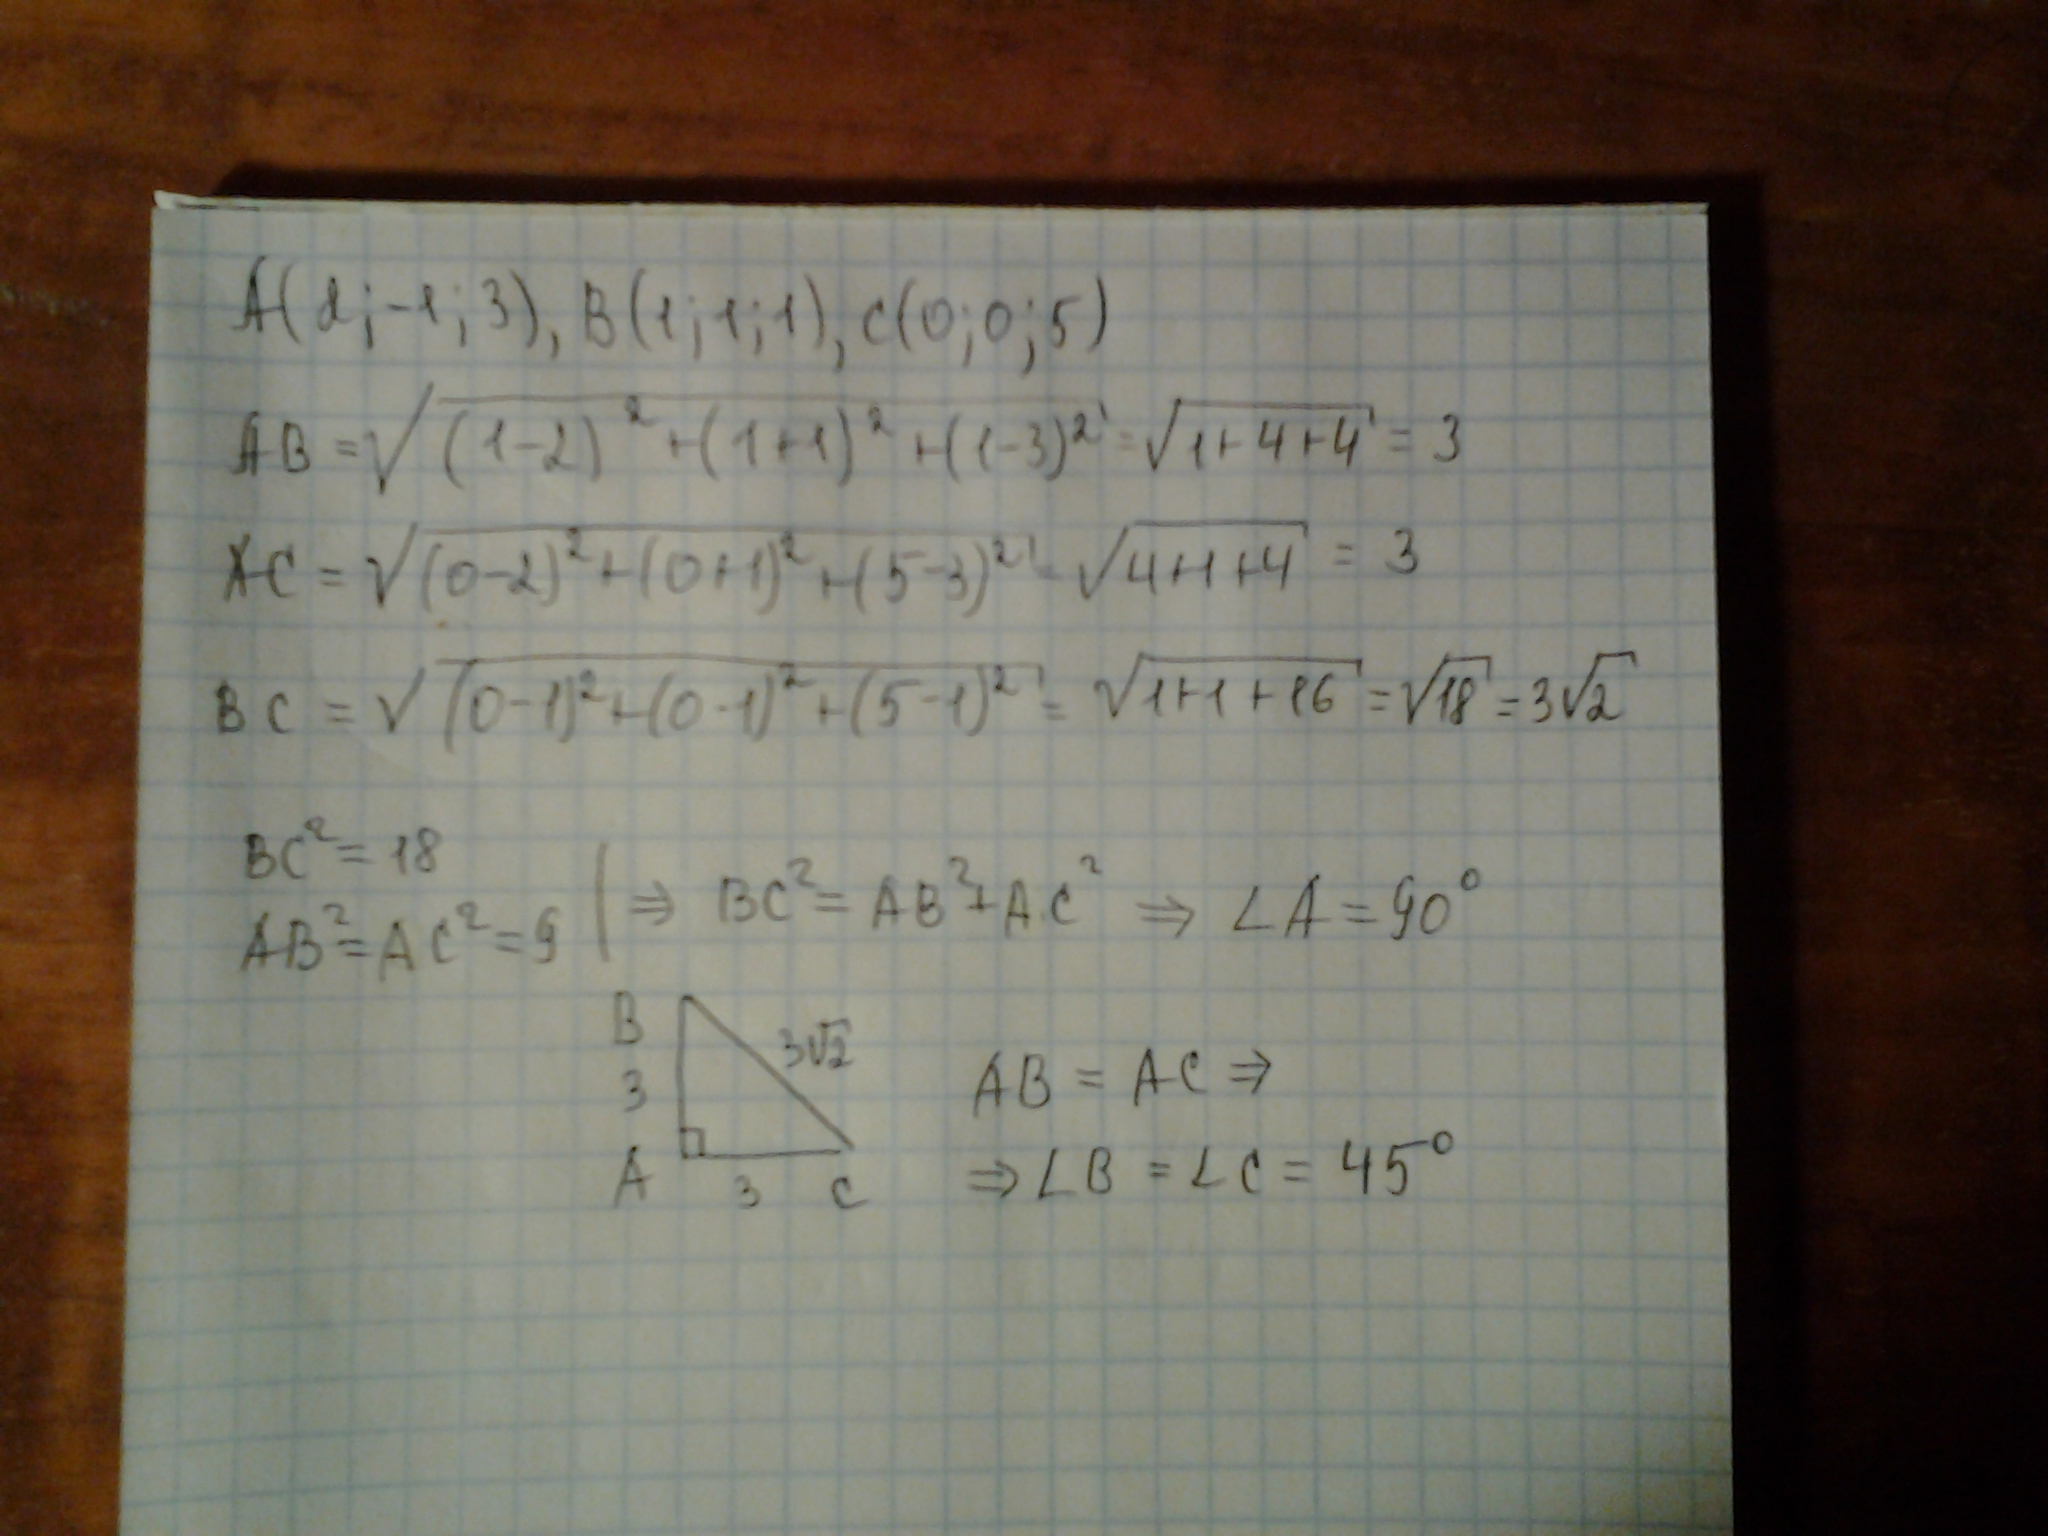 A(2;-1;3), B(1;1;1), C(0;0;5)
AB = √((1-2)² + (1+1)² + (1-3)²) = √(1+4+4) = 3
AC = √((0-2)² + (0+1)² + (5-3)²) = √(4+1+4) = 3
BC = √((0-1)² + (0-1)² + (5-1)²) = √(1+1+16) = √18 = 3√2
BC² = 18
AB² = AC² = 9 | ⇒ BC² = AB² + AC² ⇒ ∠A = 90°
B
3√2
3
A
3
C
AB = AC ⇒
⇒ ∠B = ∠C = 45°